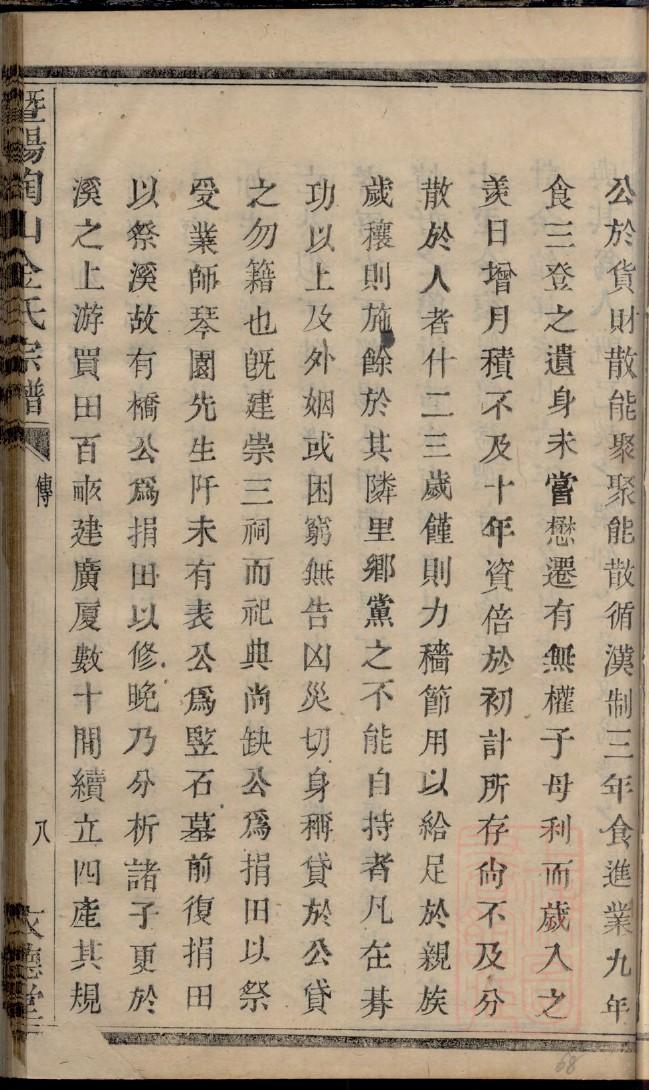 公於貨財散能聚聚能散循漢制三年食進業九年
食三登之遺身未嘗懋遷有無權子母利而歲入之
羨日增月積不及十年資倍於初計所存尙不及分
散於人者什二三歲僅則力穡節用以給足於親族
歲穰則施餘於其隣里鄉黨之不能自持者凡在朞
功以上及外姻或困窮無告凶災切身稱貸於公貸
之勿籍也旣建崇三祠而祀典尚缺公爲捐田以祭
受業師琴園先生阡未有表公爲竪石墓前復捐田
以祭溪故有橋公爲捐田以修晚乃分析諸子更於
溪之上游買田百畝建廣厦數十間續立四產其規
暨陽陶山金氏宗譜
傳
八
文德堂
68